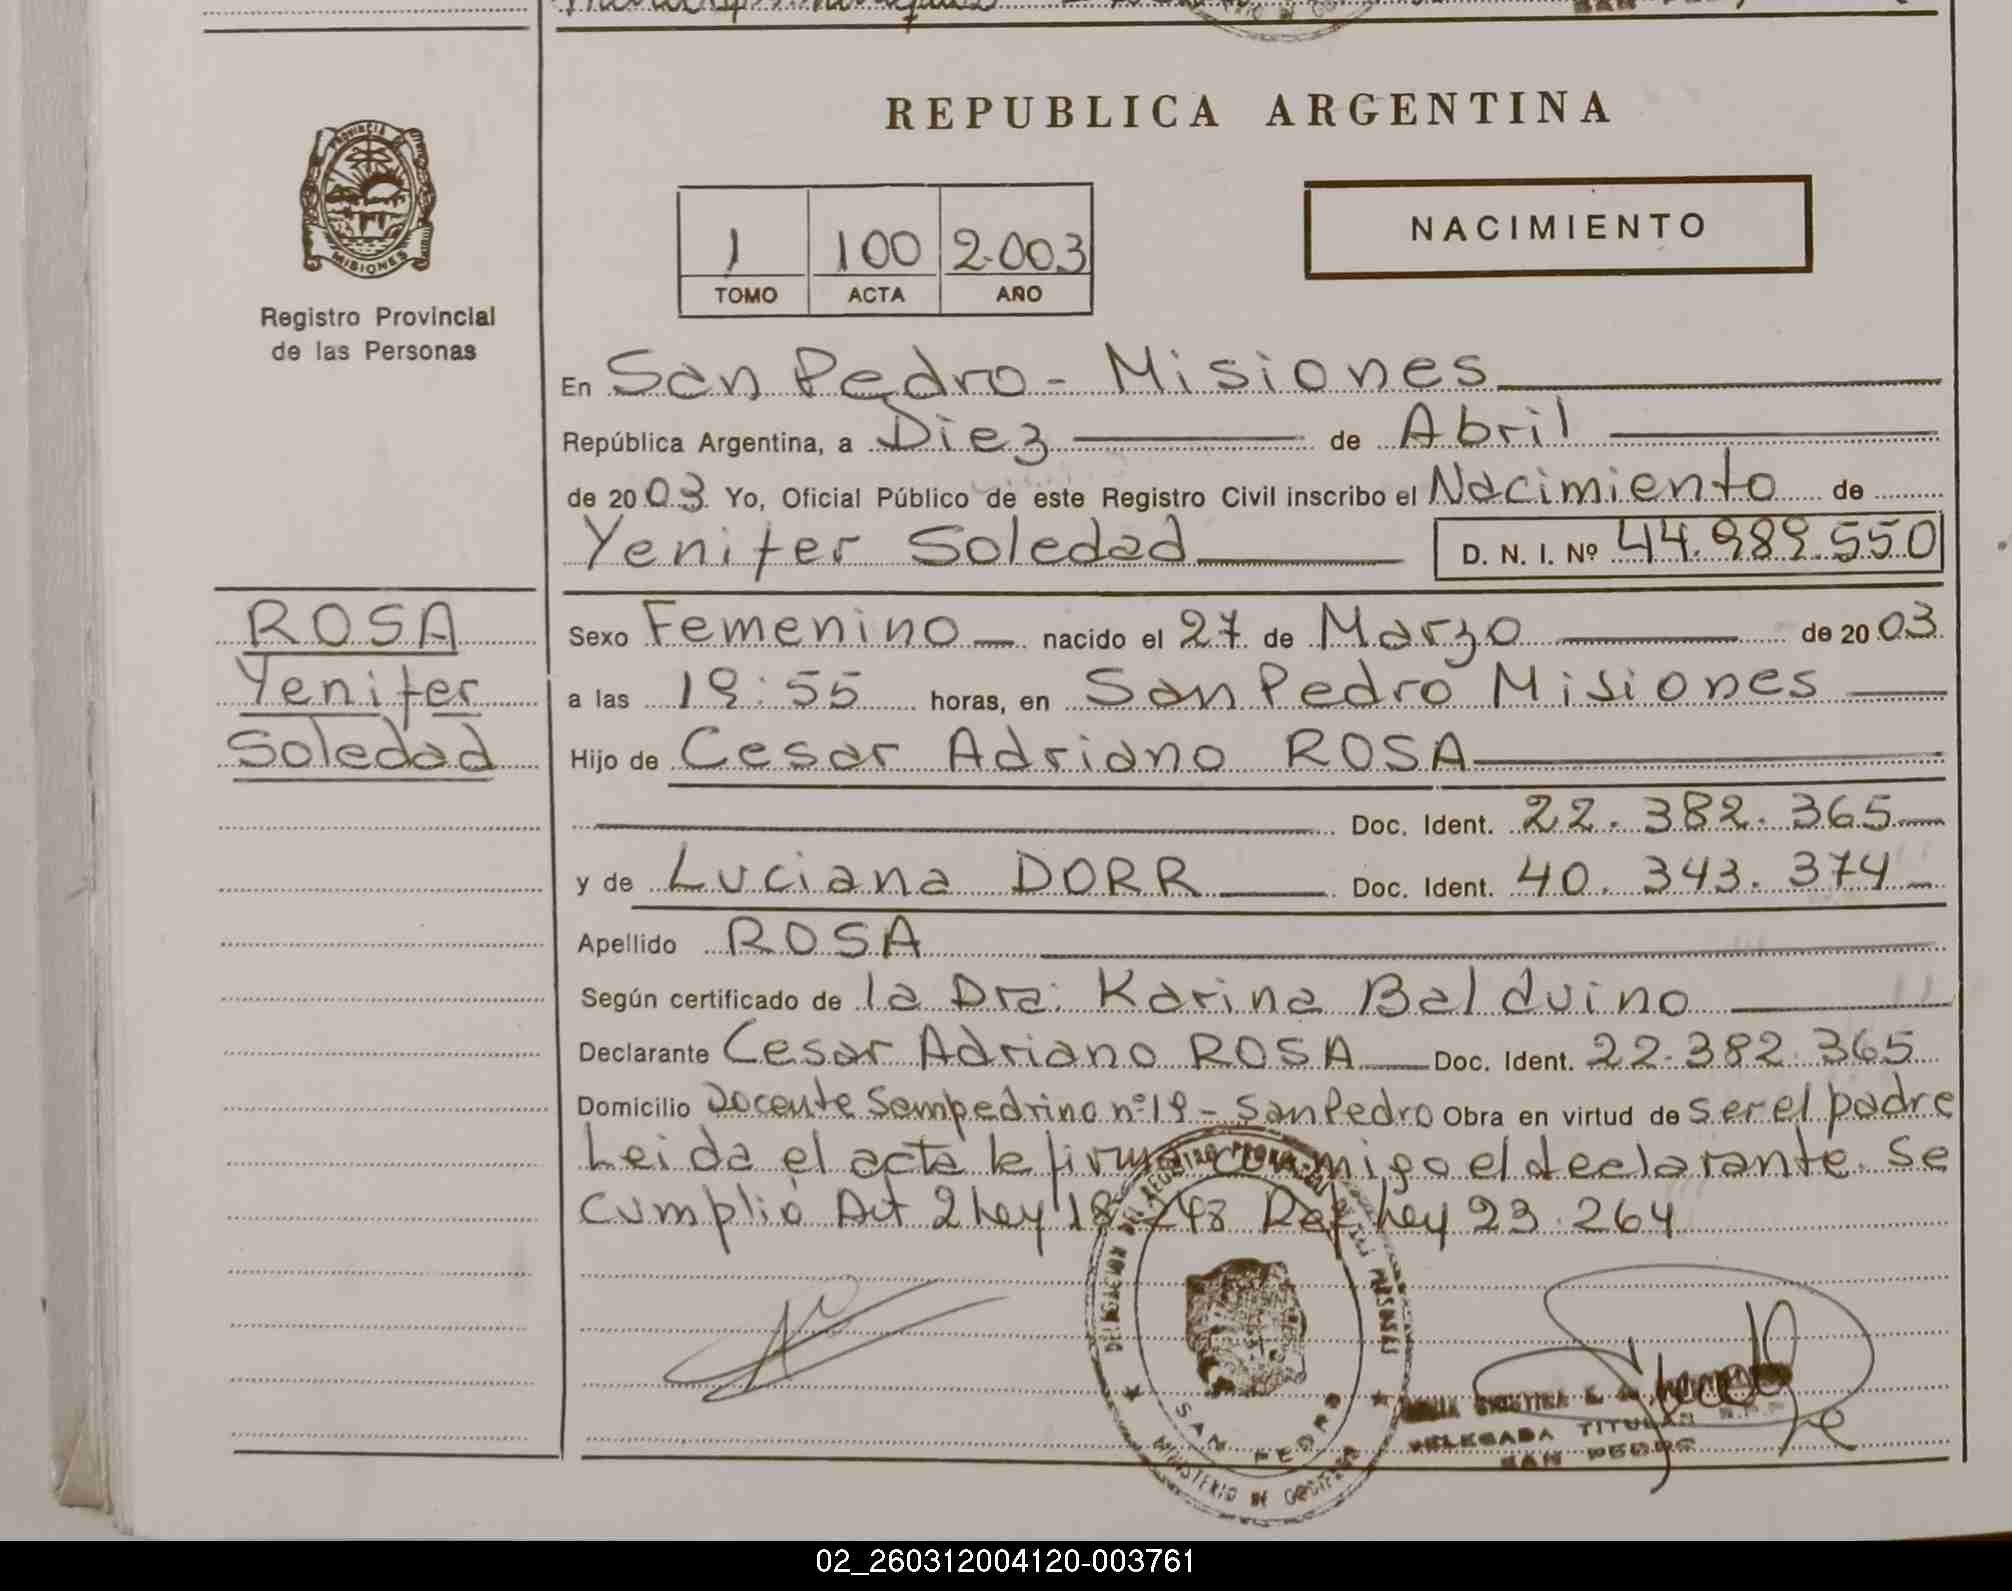 REPUBLICA ARGENTINA
PROVINCIA
MISIONES
Registro Provincial
de las Personas
1 100 2.003
TOMO ACTA AÑO
NACIMIENTO
En San Pedro - Misiones
República Argentina, a Diez de Abril
de 2003 Yo, Oficial Público de este Registro Civil inscribo el Nacimiento de
Yenifer Soledad D. N. I. Nº 44.989.550
ROSA
Yenifer
Soledad
Sexo Femenino nacido el 27 de Marzo de 2003
a las 19:55 horas, en San Pedro Misiones
Hijo de Cesar Adriano ROSA
Doc. Ident. 22.382.365
y de Luciana DORR Doc. Ident. 40.343.374
Apellido ROSA
Según certificado de la Dra. Karina Balduino
Declarante Cesar Adriano ROSA Doc. Ident. 22.382.365
Domicilio Docente Sampedrino nº 19 - San Pedro Obra en virtud de ser el padre
Leida el acta la firma conmigo el declarante. Se
cumplió Art 2 Ley 18.248 Ref Ley 23.264
SAN PEDRO
MINISTERIO DE GOBIERNO
DELEGADA TITULAR
SAN PEDRO
02_260312004120-003761